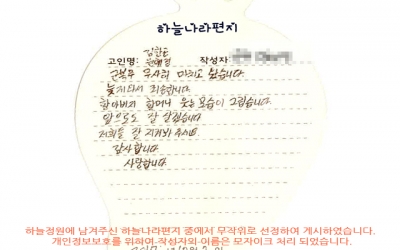 하늘나라편지
고인명:
작성자
군복무 무사히 마치고 왔습니다
늦게 와서 죄송합니다
할아버지 할머니 웃는 모습이 그립습니다
앞으로도 잘 살겠습니다
저희를 잘 지켜봐 주세요
감사합니다
사랑합니다
하늘정원에 남겨주신 하늘나라편지 중에서 무작위로 선정하여 게시하였습니다.
개인정보보호를 위하여 작성자의 이름은 모자이크 처리 되었습니다.